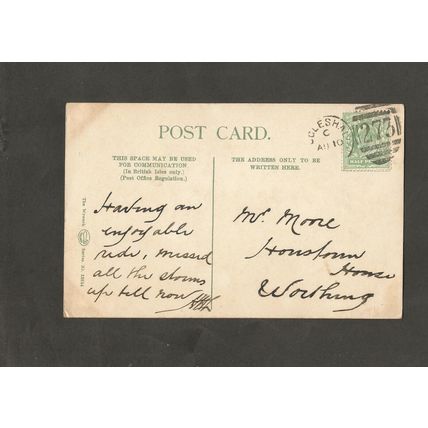 POST CARD.
THIS SPACE MAY BE USED
FOR COMMUNICATION.
(In British Isles only.)
(Post Office Regulation.)
THE ADDRESS ONLY TO BE
WRITTEN HERE.
Having an
enjoyable
ride, missed
all the storms
up till now
Mr. Moore
House
Worthing
The Wrench
Series, No.
CCLESHA
C
AU 10
273
HALF PE